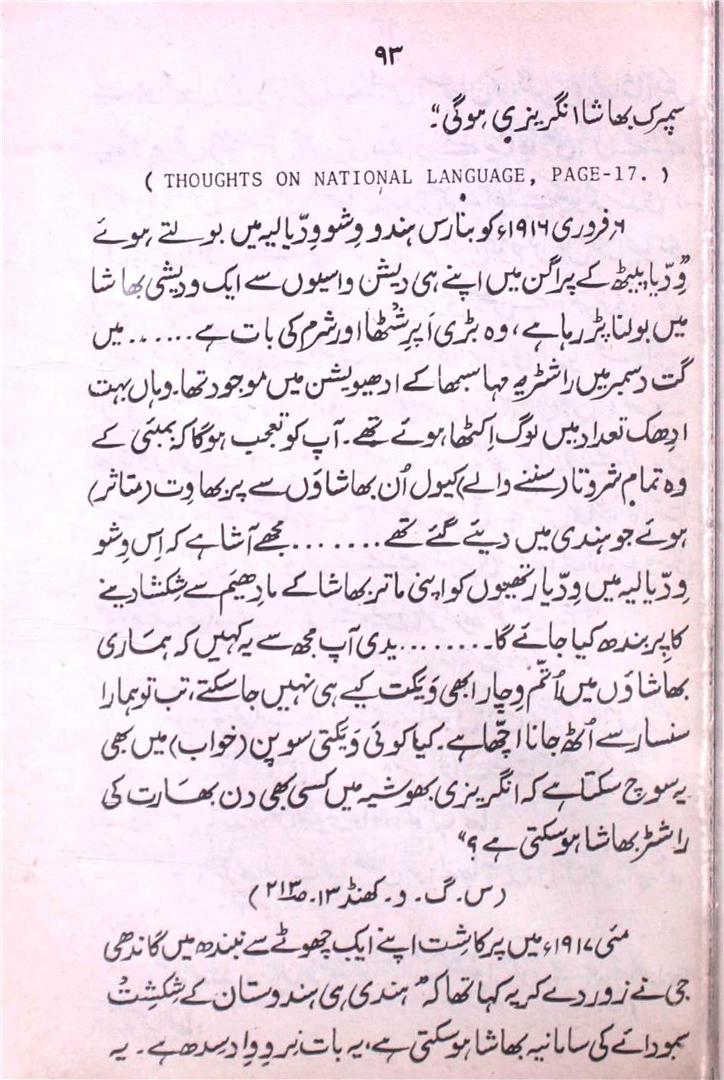 ۹۳
سمپرک بھاشا انگریزی ہوگی“
( THOUGHTS ON NATIONAL LANGUAGE, PAGE-17. )
۶ فروری ۱۹۱۶ء کو بنارس ہندو وشو ودّیالیہ میں بولتے ہوئے
”وِدّیاپیٹھ کے پراگن میں اپنے ہی دیش واسیوں سے ایک ودیشی بھاشا
میں بولنا پڑ رہا ہے، وہ بڑی اَپرِشٹھا اور شرم کی بات ہے...... میں
گت دسمبر میں راشٹریہ مہا سبھا کے ادھیویشن میں موجود تھا۔ وہاں بہت
ادِھک تعداد میں لوگ اِکٹھا ہوئے تھے۔ آپ کو تعجب ہوگا کہ بمبئی کے
وہ تمام شروتا (سننے والے) کیول اُن بھاشاؤں سے پربھاوِت (متاثر)
ہوئے جو ہندی میں دیئے گئے تھے....... مجھے آشا ہے کہ اِس وِشو
وِدیالیہ میں وِدّیارتھیوں کو اپنی ماتر بھاشا کے مادِھیَم سے شِکشا دینے
کا پربندھ کیا جائے گا۔....... یدی آپ مجھ سے یہ کہیں کہ ہماری
بھاشاؤں میں اُتّم وِچار ابھی وَیکت کیے ہی نہیں جاسکتے، تب تو ہمارا
سنسار سے اُٹھ جانا اچھّا ہے۔ کیا کوئی وَیکتی سوپن (خواب) میں بھی
یہ سوچ سکتا ہے کہ انگریزی بھوشیہ میں کسی بھی دن بھارت کی
راشٹر بھاشا ہوسکتی ہے؟“
(س۔ گ۔ و۔ کھنڈ ۱۳۔ صـ۲۱۳)
مئی ۱۹۱۷ء میں پرکاشت اپنے ایک چھوٹے سے نبندھ میں گاندھی
جی نے زور دے کر یہ کہا تھا کہ ”ہندی ہی ہندوستان کے شِکشِتْ
سمودائے کی سامانیہ بھاشا ہوسکتی ہے، یہ بات نِروِواد سدھ ہے۔ یہ